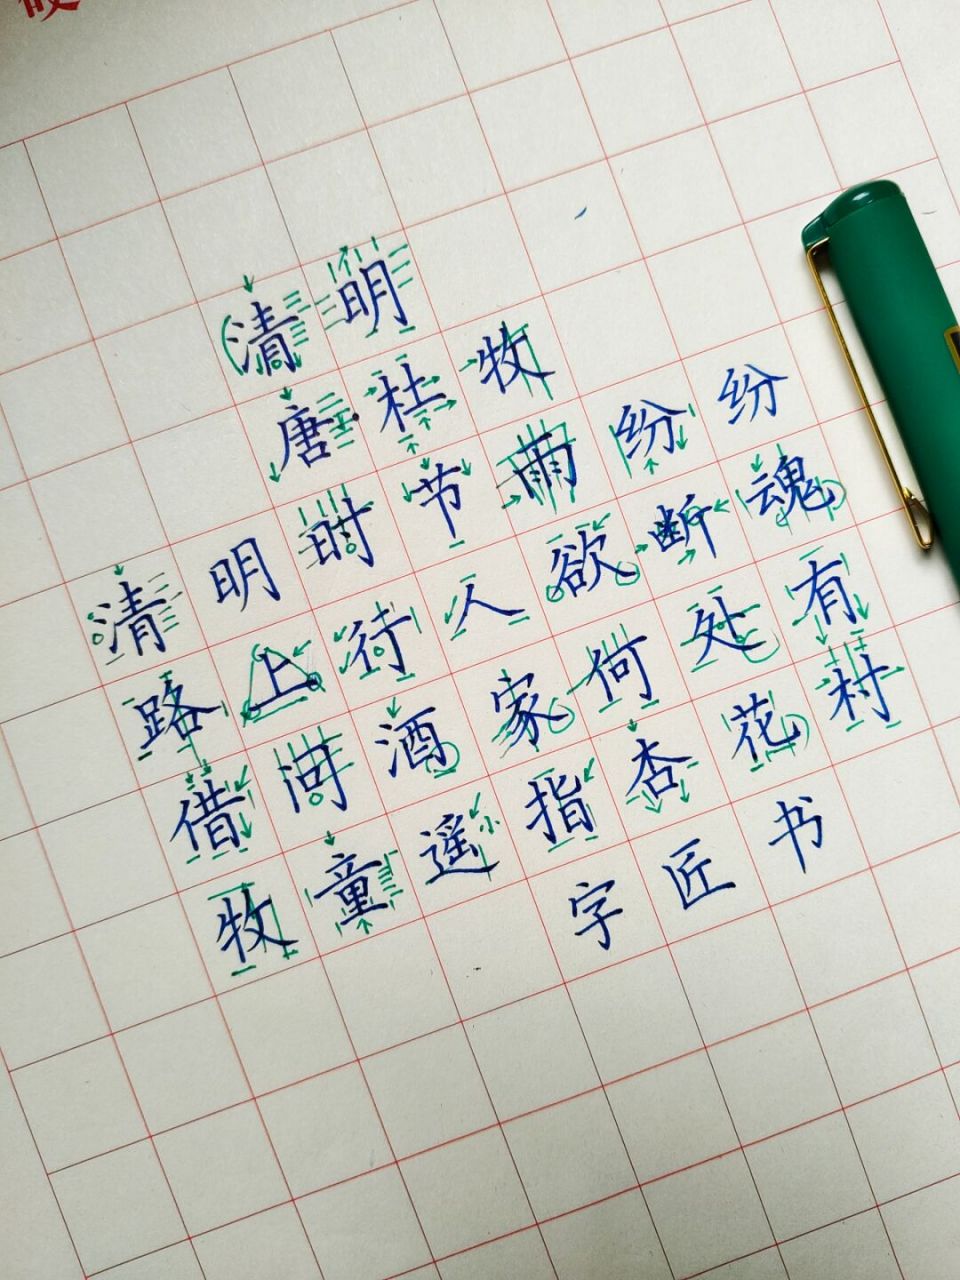 清明
唐杜牧
清明时节雨纷纷
路上行人欲断魂
借问酒家何处有
牧童遥指杏花村
字匠书